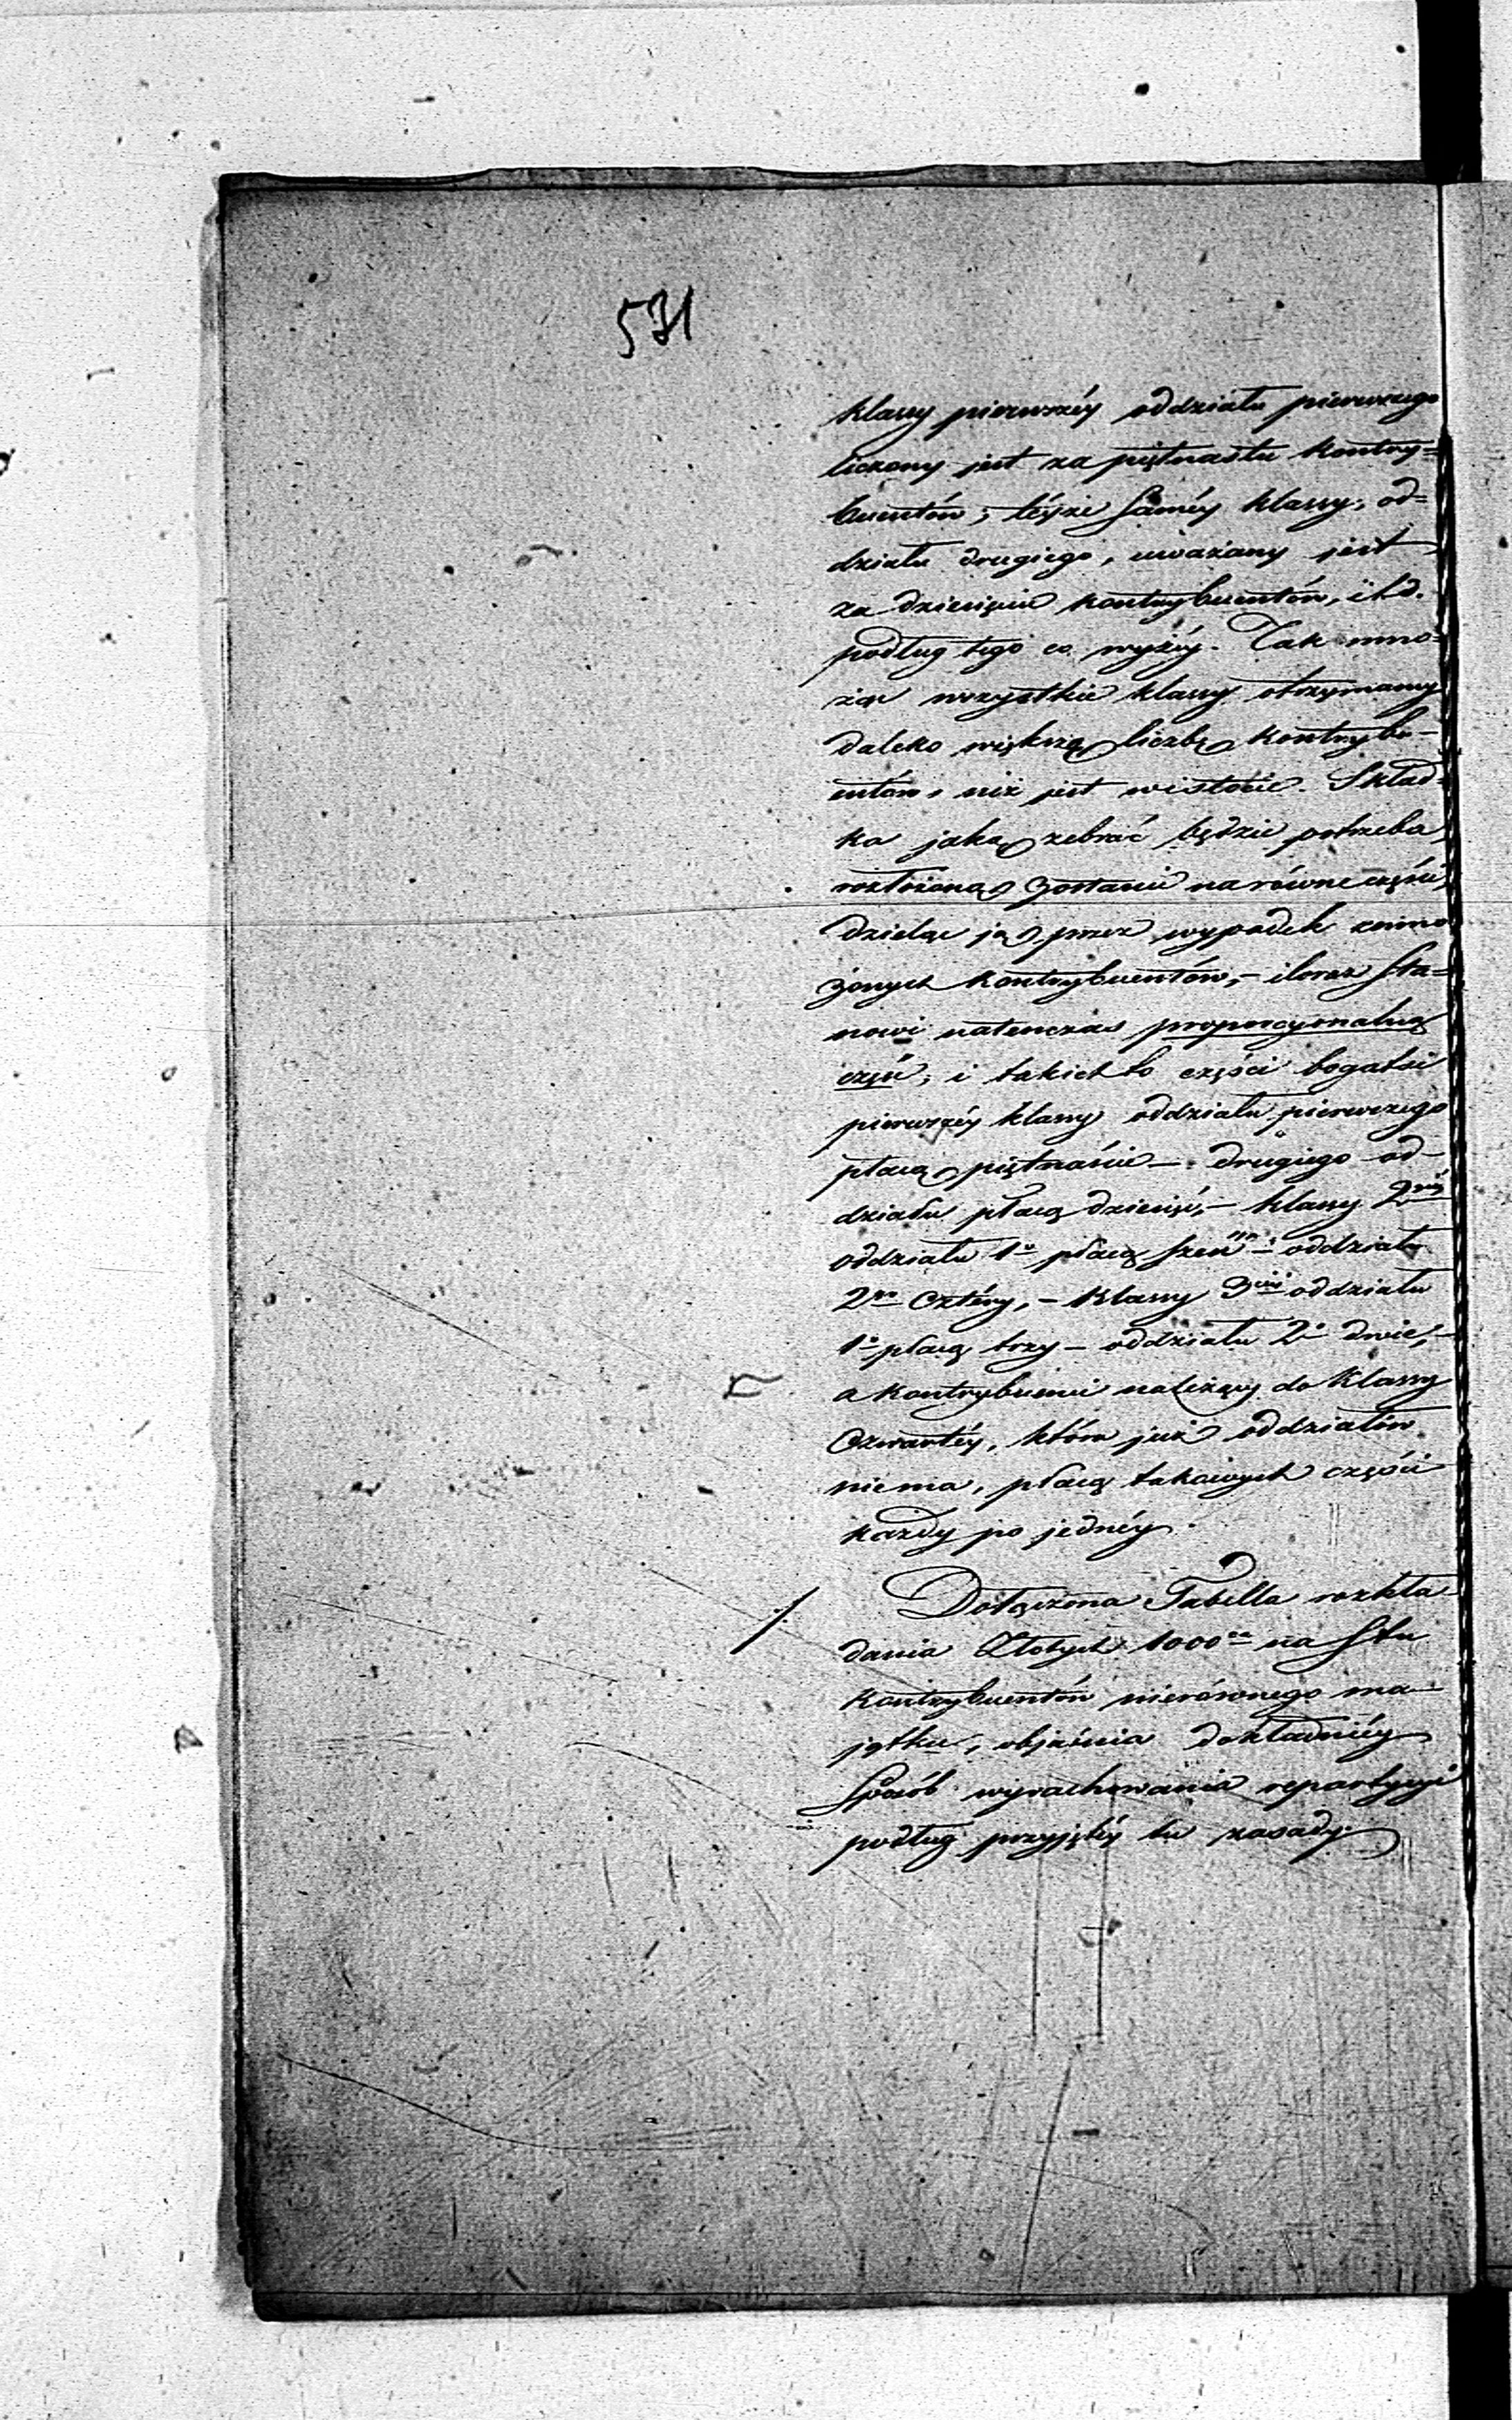 531
klassy pierwszéy oddziału pierwszego
liczony jest za piętnastu kontry=
buentów; téyże saméy klassy, od=
działu drugiego, uważany jest
za dziesięciu kontrybuentów, i t.d.
podług tego co wyżéy. Tak mno=
żąc wszystkie klassy otrzymamy
daleko większą liczbę kontrybu-
entów, niż jest w istocie. Skład=
ka jaką zebrać będzie potrzeba,
rozłożoną zostanie na równe części,
dzieląc ją przez wypadek zmno
żonych kontrybuentów,- iloraz sta=
nowi natenczas proporcyonalną
część, i takich to części bogatsi
pierwszéy klassy oddziału pierwszego
płacą piętnaście - drugiego od-
działu płacą dziesięć,- klassy 2giéy
oddziału 1o płacą sześć - oddziału
2go cztéry, - klassy 3ciéj oddziału
1o płacą trzy - oddziału 2o dwie,-
a kontrybuenci należący do klassy
czwartéy, która już oddziałów
niema, płacą takowych części
każdy po jednéy.
/ Dołączona Tabella rozkła
dania Złotych 1000 na stu
kontrybuentów nierównego ma-
jątku, objaśnia dokładniéy
sposób wyrachowania repartycyi
podług przyjętéy tu zasady.